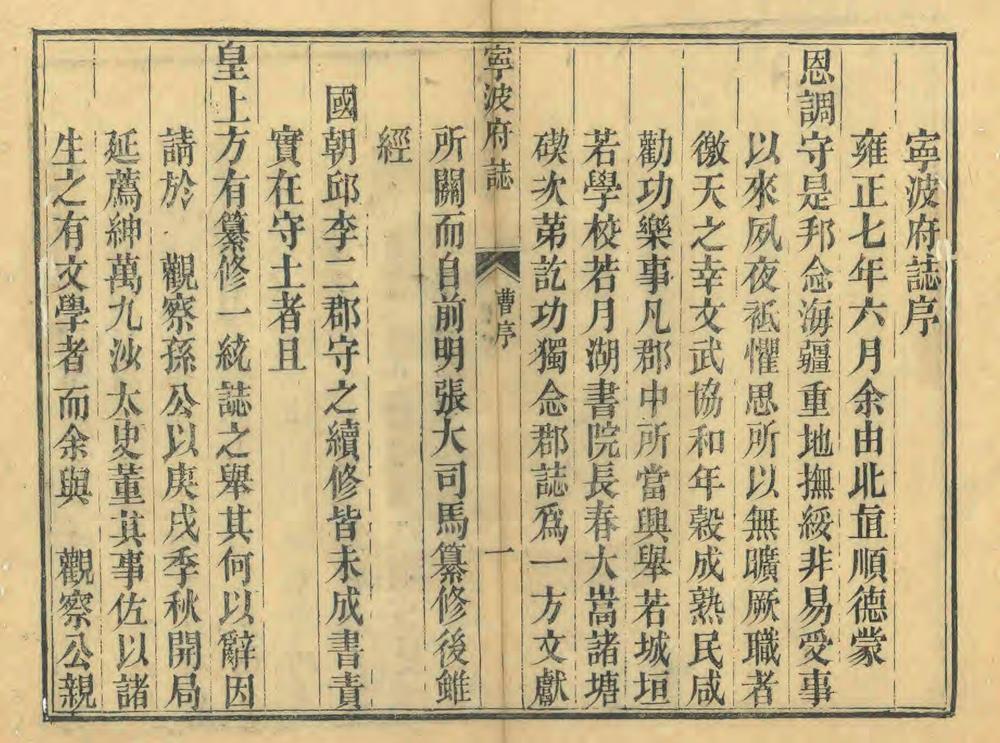 寧波府誌序
雍正七年六月余由北直順德蒙
恩調守是邦念海疆重地撫綏非易受事
以來夙夜祇懼思所以無曠厥職者
徼天之幸文武協和年穀成熟民咸
勸功樂事凡郡中所當興舉若城垣
若學校若月湖書院長春大嵩諸塘
碶次第訖功獨念郡誌爲一方文獻
寧波府誌
曹序
一
所關而自前明張大司馬纂修後雖
經
國朝邱李二郡守之續修皆未成書責
實在守土者且
皇上方有纂修一統誌之舉其何以辭因
請於 觀察孫公以庚戌季秋開局
延薦紳萬九沙太史董其事佐以諸
生之有文學者而余與 觀察公親